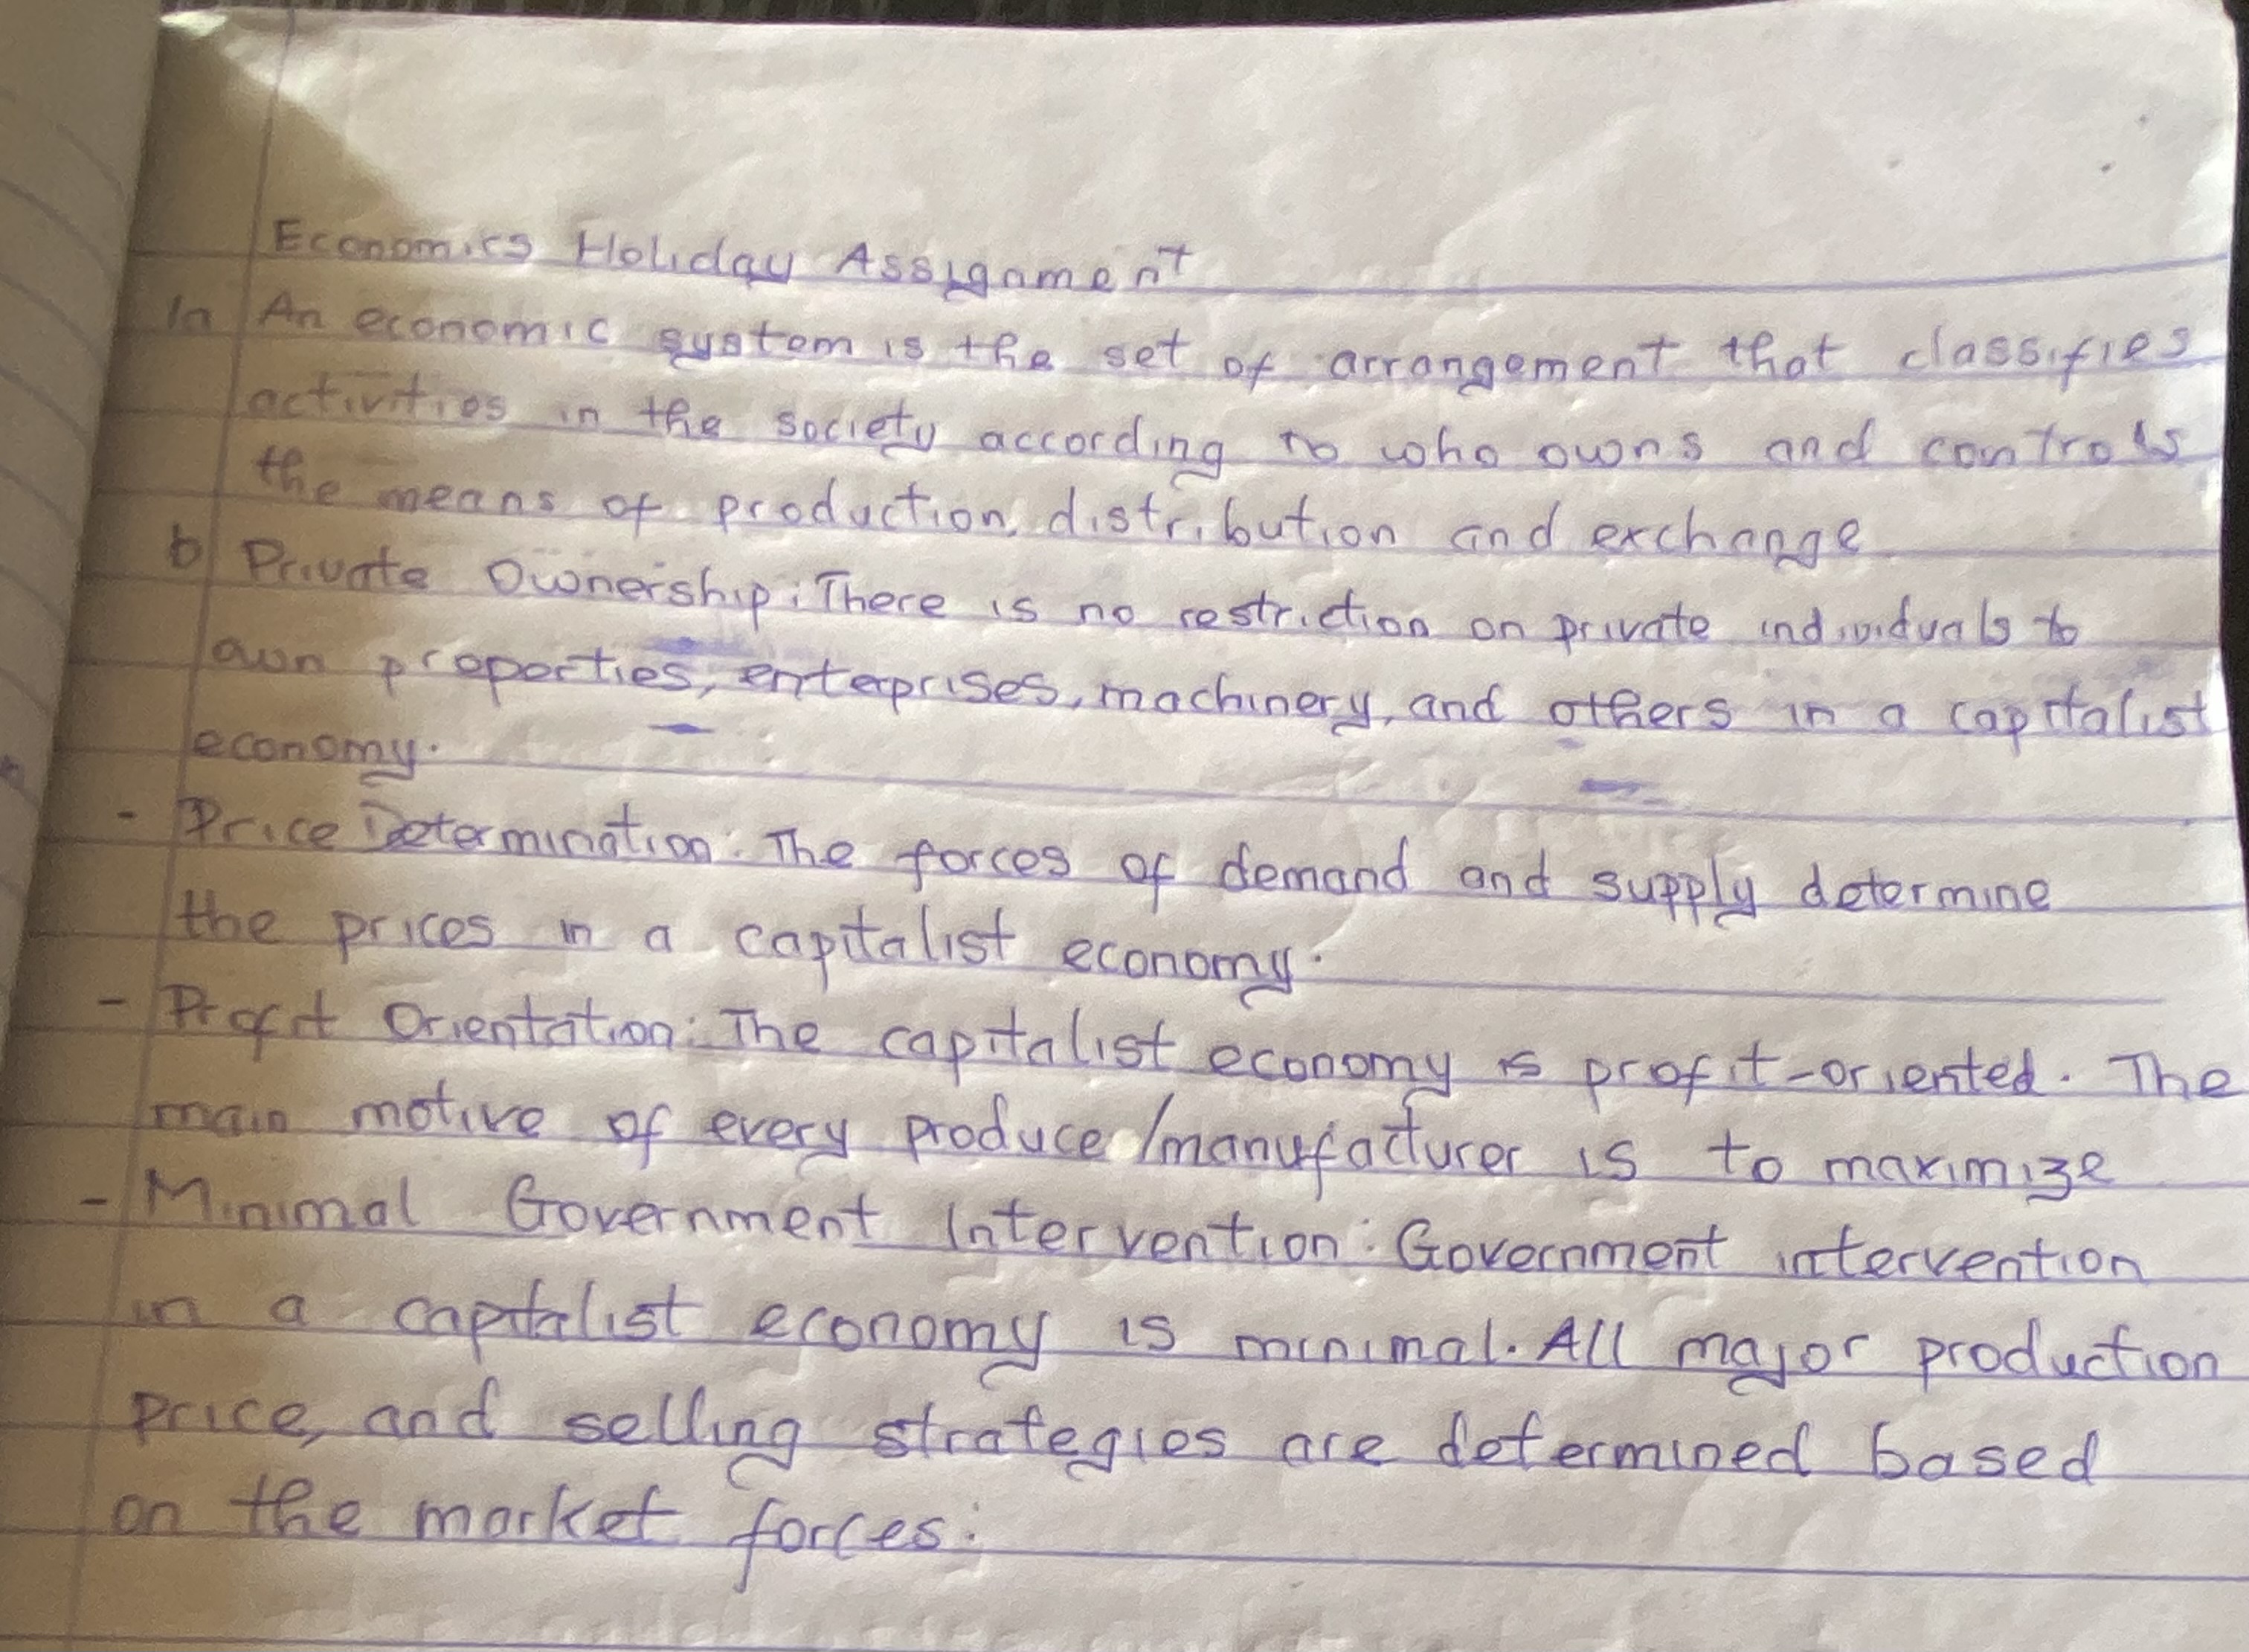 Economics Holiday Assignment
1a An economic system is the set of arrangement that classifies
activities in the society according to who owns and controls
the means of production, distribution and exchange
b Private Ownership: There is no restriction on private individuals to
own properties, enterprises, machinery, and others in a capitalist
economy.
- Price Determination: The forces of demand and supply determine
the prices in a capitalist economy.
- Profit Orientation: The capitalist economy is profit-oriented. The
main motive of every produce/manufacturer is to maximize
- Minimal Government Intervention: Government intervention
in a capitalist economy is minimal. All major production
price, and selling strategies are determined based
on the market forces.